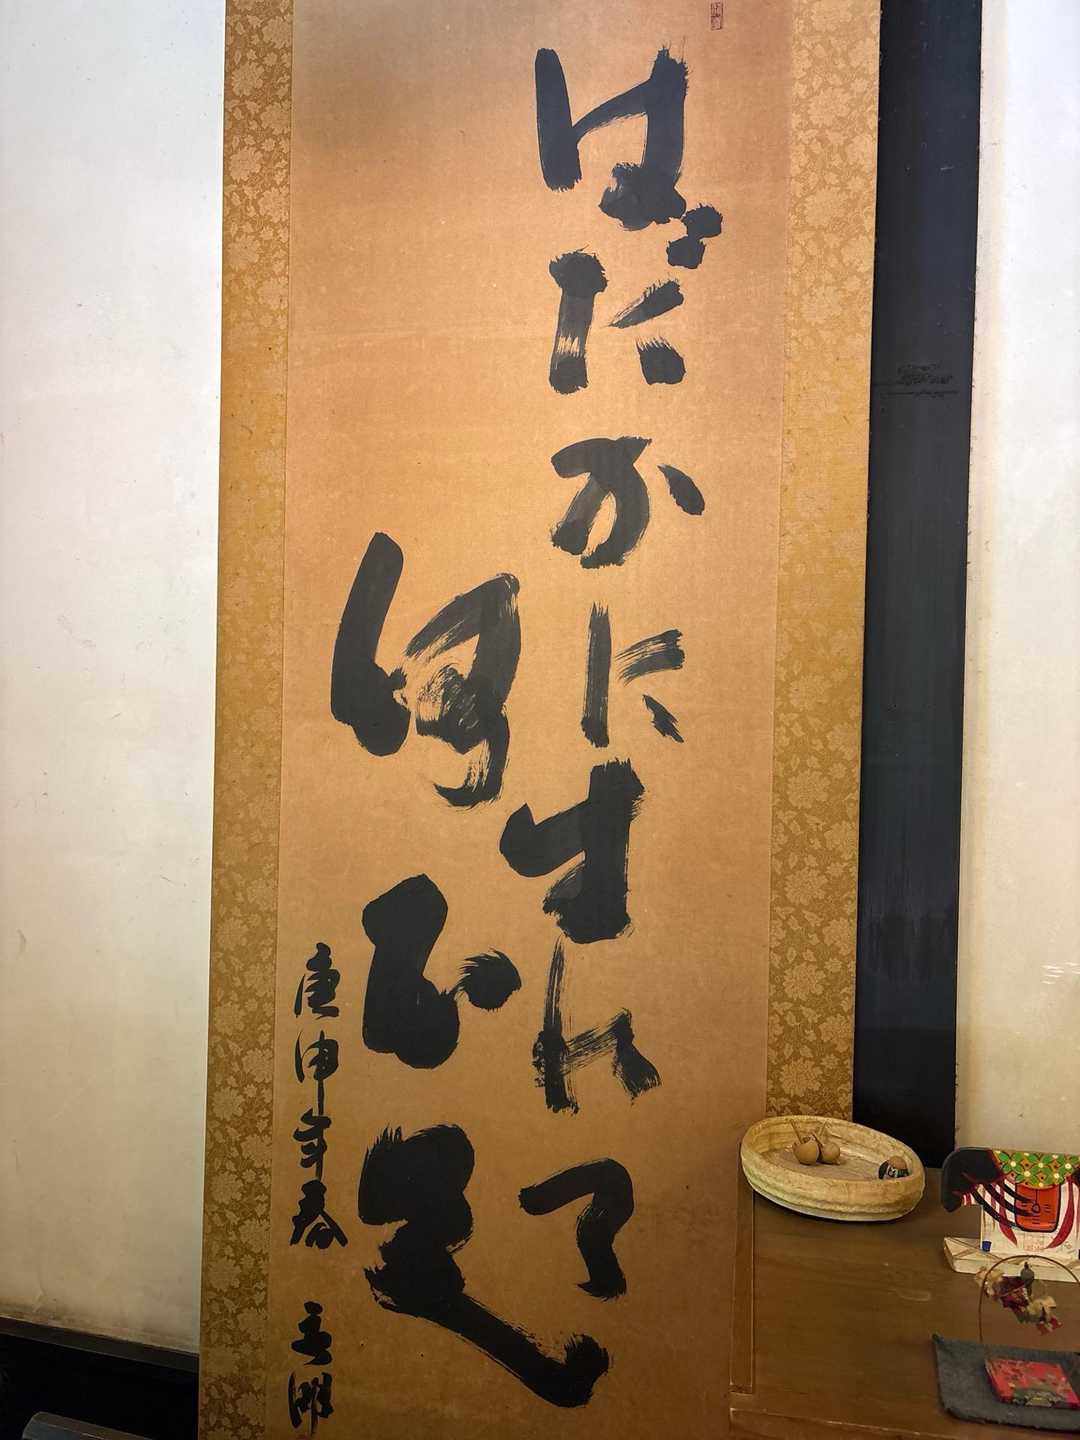 はだかに生れて
何不足
庚申年春